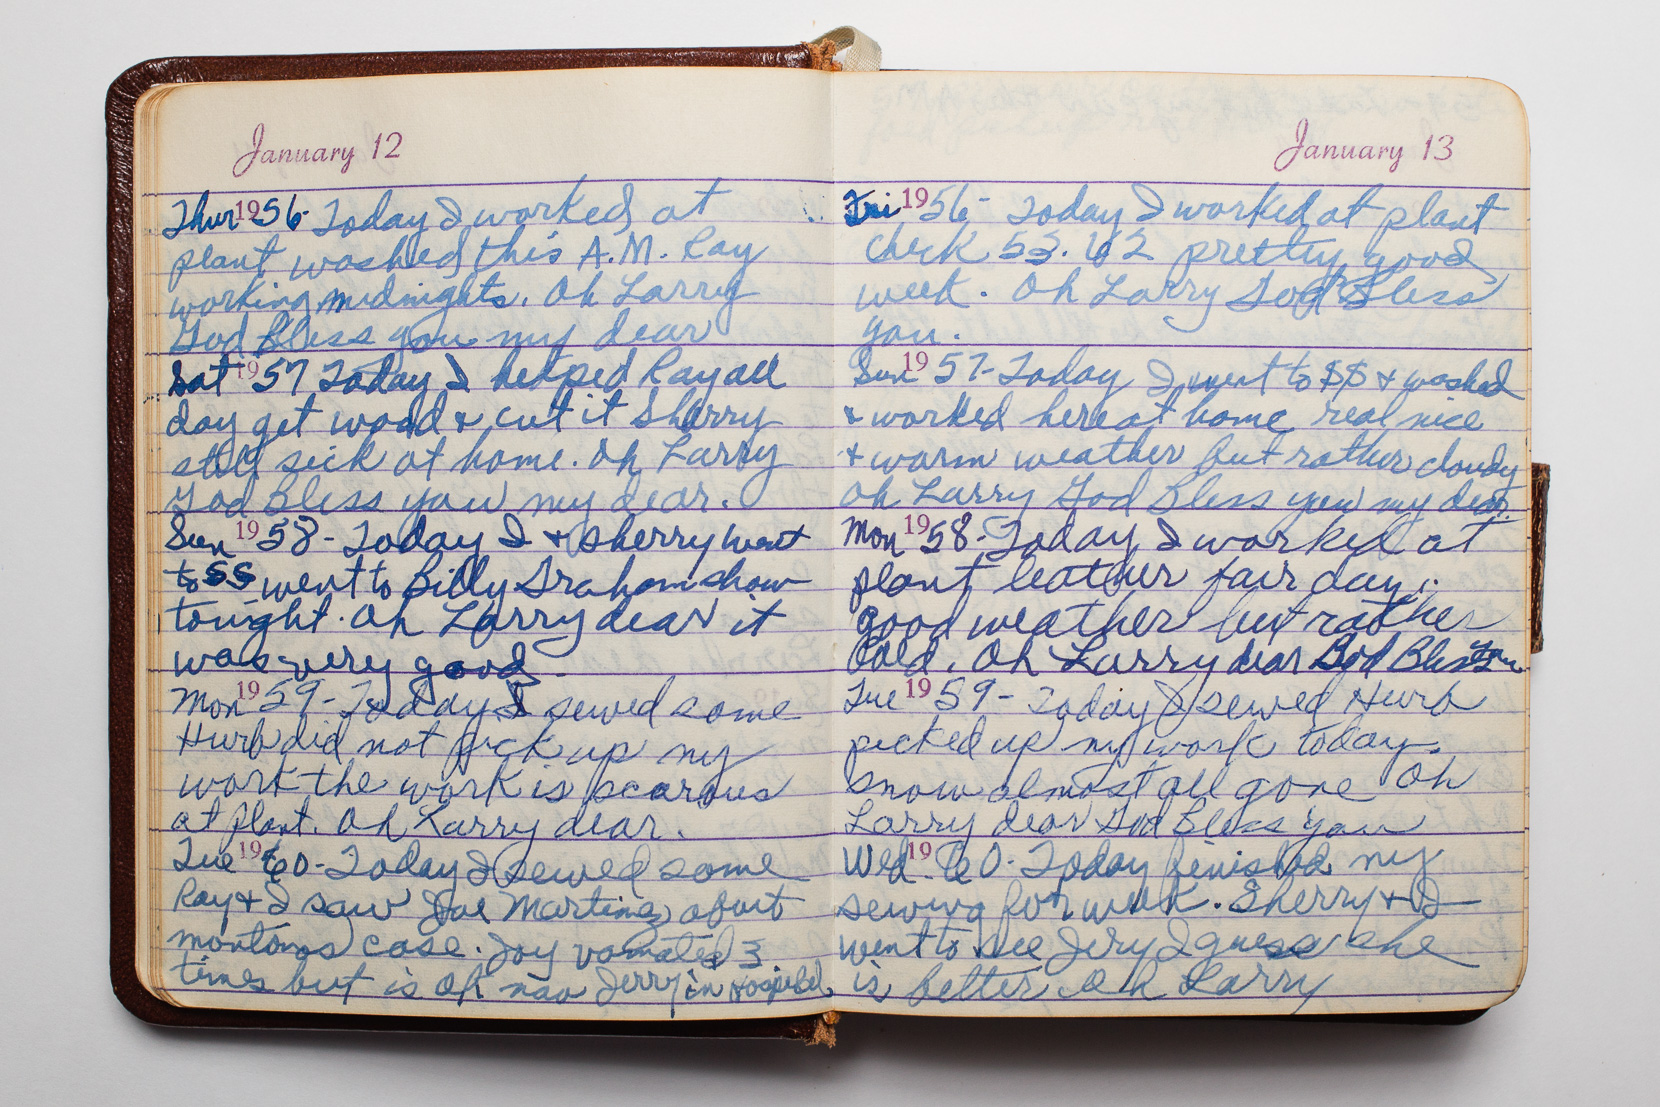 January 12
Thur 1956- Today I worked at
plant washed this A.M. Ray
working midnights. Oh Larry
God Bless you my dear
Sat 1957 Today I helped Ray all
day get wood & cut it Sherry
still sick at home. Oh Larry
God Bless you my dear.
Sun 1958- Today I & Sherry went
to SS went to Billy Graham show
tonight. Oh Larry dear it
was very good.
Mon 1959- Today I sewed some
Hurb did not pick up my
work the work is scarous
at plant. Oh Larry dear.
Tue 1960- Today I sewed some
Ray & I saw Joe Martinez about
case. Joy vomated 3
times but is oh nao Jerry in Hospibel
January 13
Fri 1956- Today I worked at plant
check 53.62 pretty good
week. Oh Larry God Bless
you.
Sun 1957- Today I went to SS & washed
& worked here at home real nice
& warm weather but rather cloudy
Oh Larry God Bless you my dear.
Mon 1958- Today I worked at
plant leather fair day.
good weather but rather
Cold. Oh Larry dear God Bless you
Tue 1959- Today I sewed Hurb
picked up my work today.
snow almost all gone Oh
Larry dear God Bless you
Wed. 1960- Today finished my
sewing for week. Sherry & I
went to see Jery I guess she
is better Oh Larry